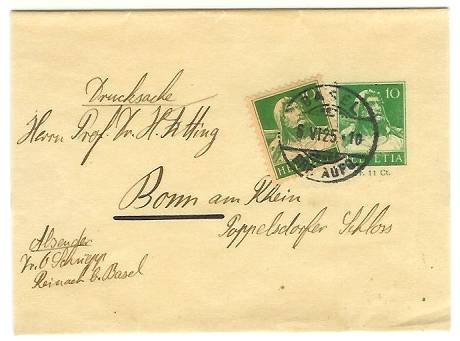 Drucksache
Herrn Prof. Dr. H.
BASEL
6. VI 25 - 10
AUFG.
10
HELVETIA
11 Ct.
Bonn am Rhein
Poppelsdorfer Schloss
Absender
Dr. O Schnepp
Reinach b. Basel